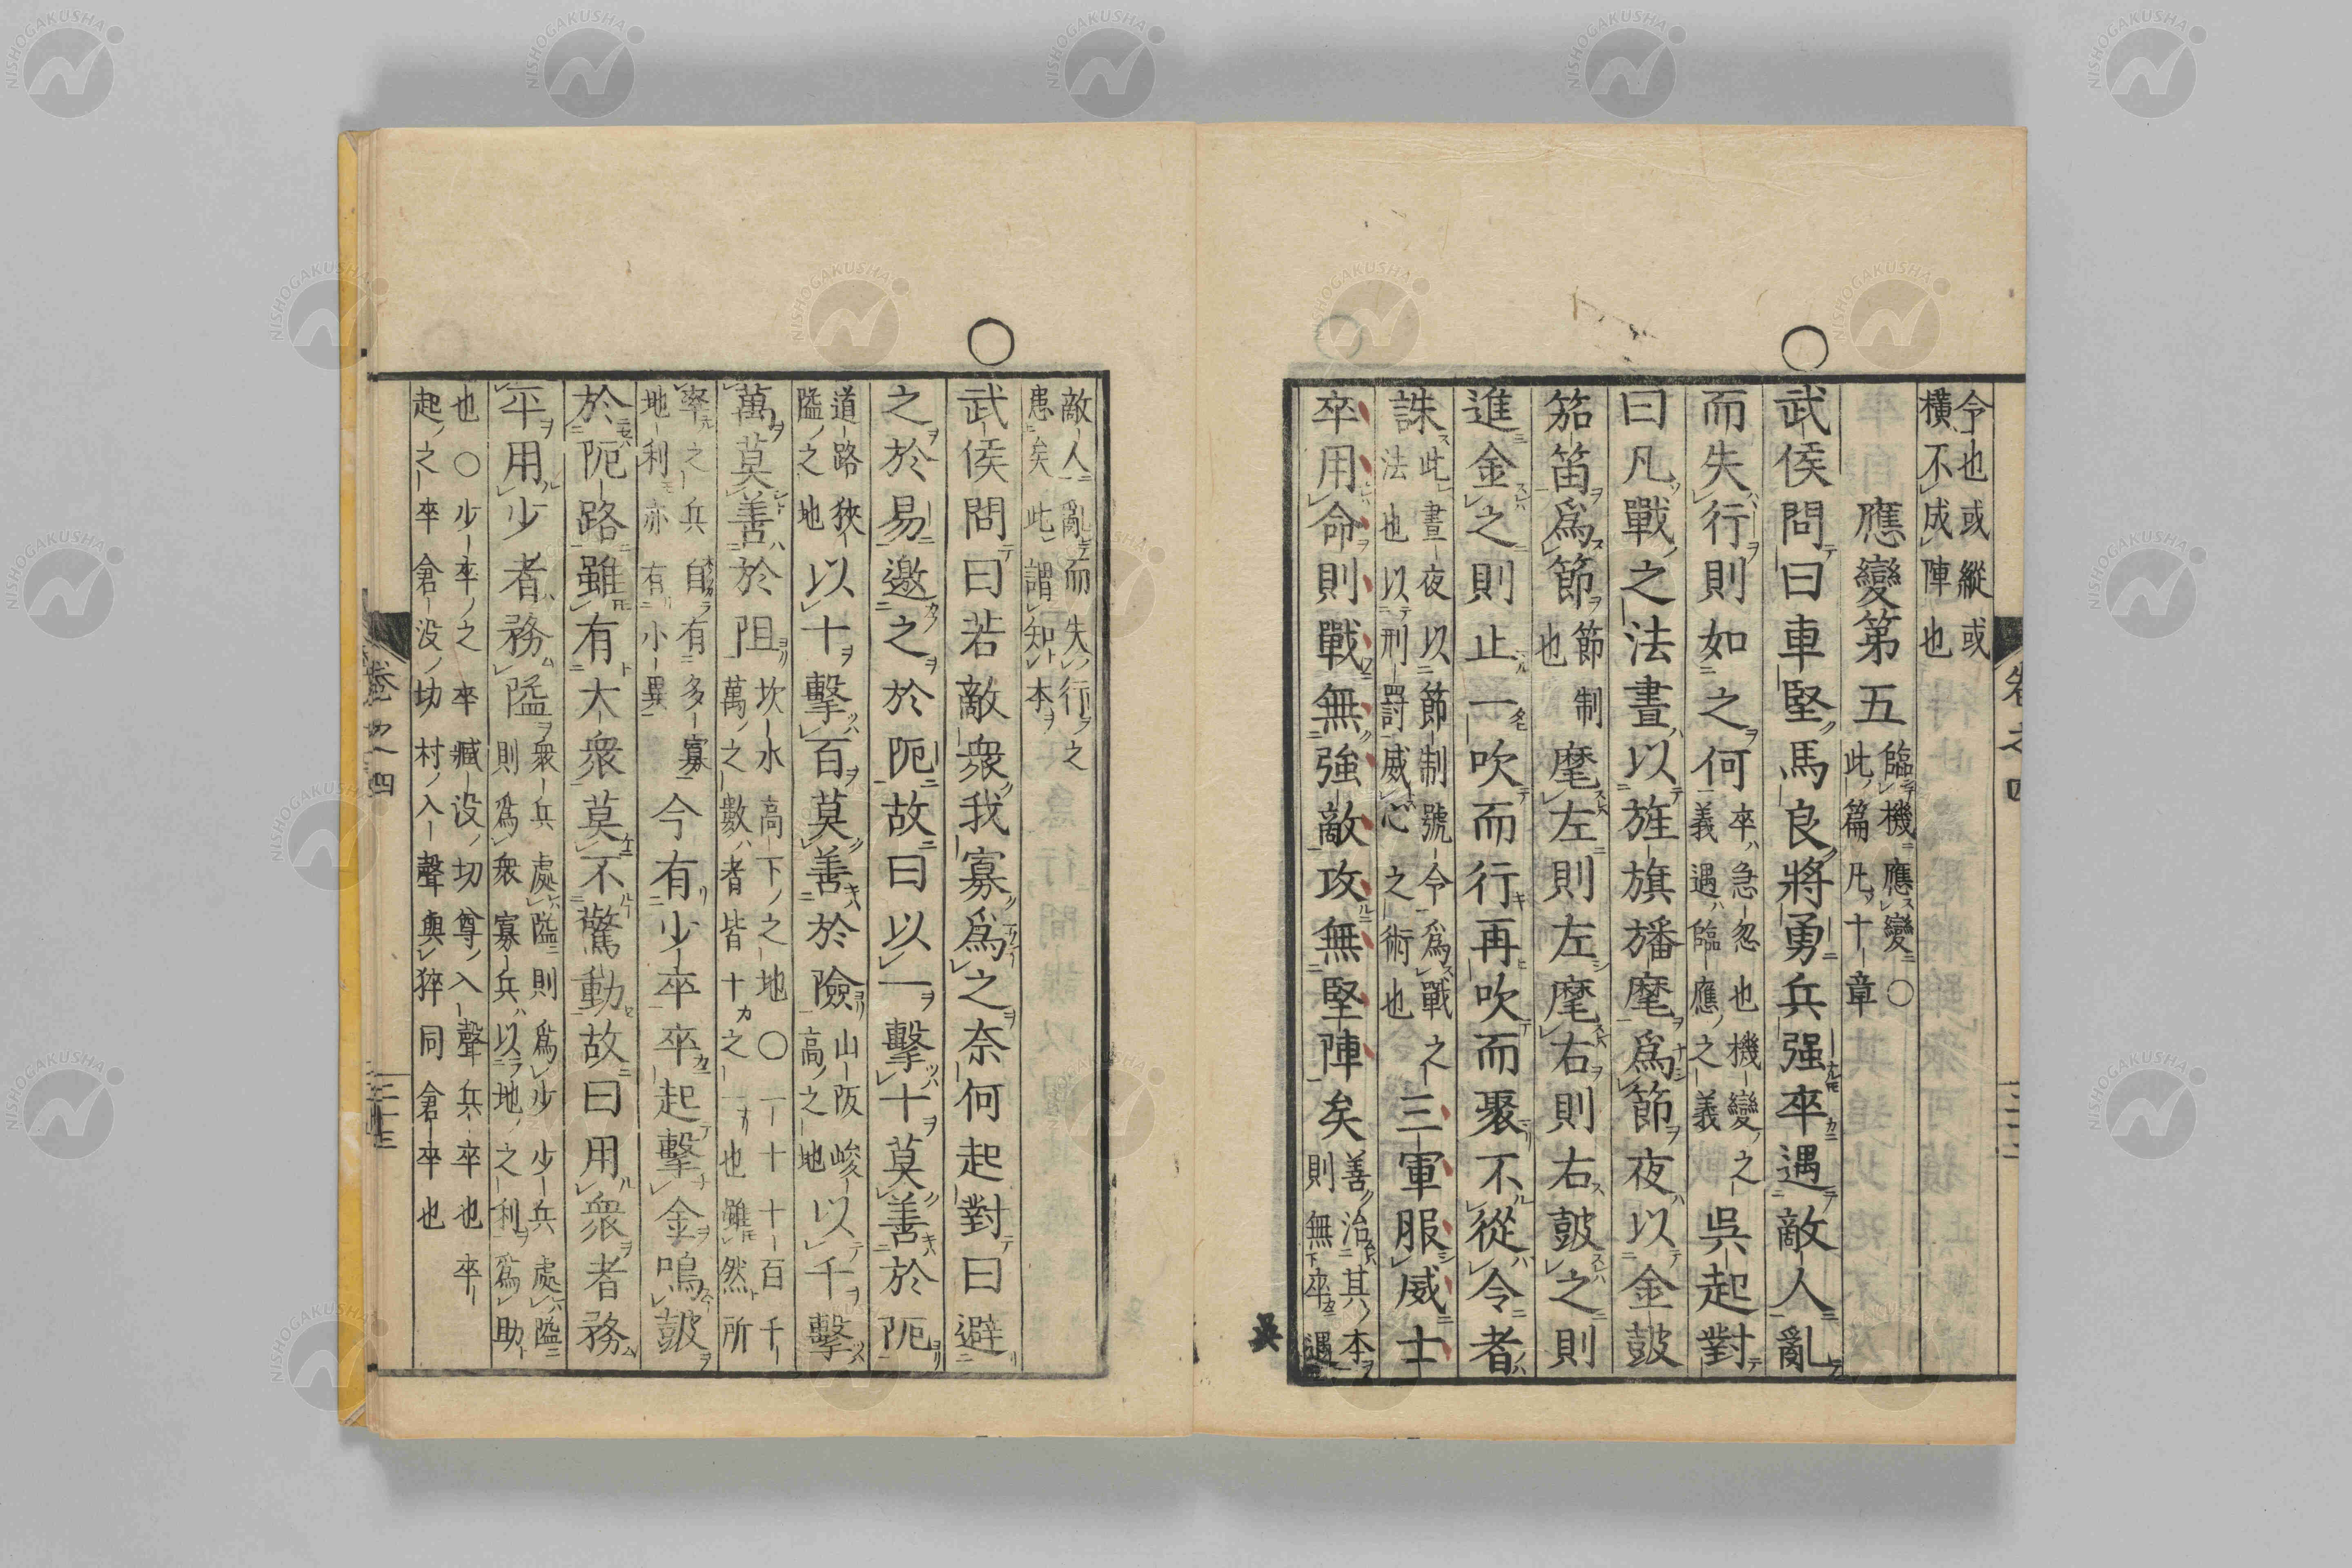 令也或縱或
橫不成陣也
應變第五 臨機應變○
此篇凡十章
武侯問曰車堅馬良將勇兵强卒遇敵人亂
而失行則如之何 卒急忽也機變之
義遇臨應之義 吳起對
曰凡戰之法晝以旌旗旛麾爲節夜以金鼓
笳笛爲節 節制
也 麾左則左麾右則右鼓之則
進金之則止一吹而行再吹而聚不從令者
誅 此晝夜以節制號令爲戰之
法也以刑罰威心之術也 三軍服威士
卒用命則戰無強敵攻無堅陣矣 善治其本
則無卒遇
敵人亂而失行之
患矣此謂知本
武侯問曰若敵衆我寡爲之奈何起對曰避
之於易邀之於阨故曰以一擊十莫善於阨
道路狹
隘之地 以十擊百莫善於險 山阪峻
高之地 以千擊
萬莫善於阻 坎水高下之地○一十十百千
萬之數者皆十之一也雖然所
率之兵自有多寡
地利亦有小異 今有少卒卒起擊金鳴鼓
於阨路雖有大衆莫不驚動故曰用衆者務
平用少者務隘 衆兵處隘則爲少少兵處隘
則爲衆寡兵以地之利爲助
也○少卒之卒臧没切尊入聲兵卒也卒
起之卒倉没切村入聲與猝同倉卒也
卷之四
NISHOGAKUSHA